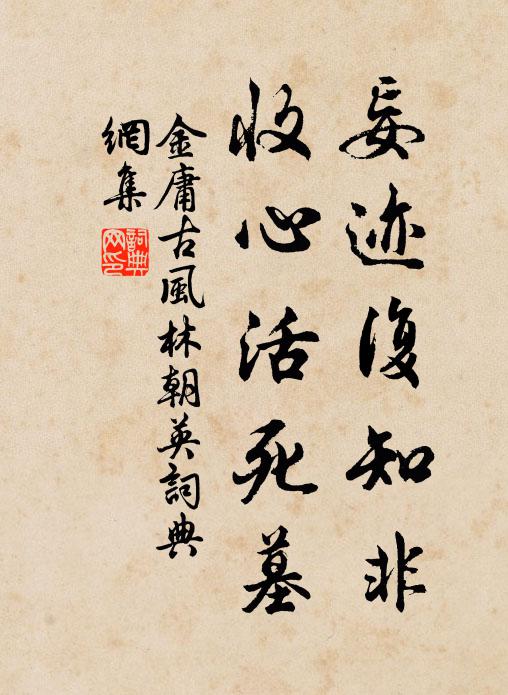 妄迹復知非
收心活死墓
金庸古風林朝英詞典
網集
詞典
网印